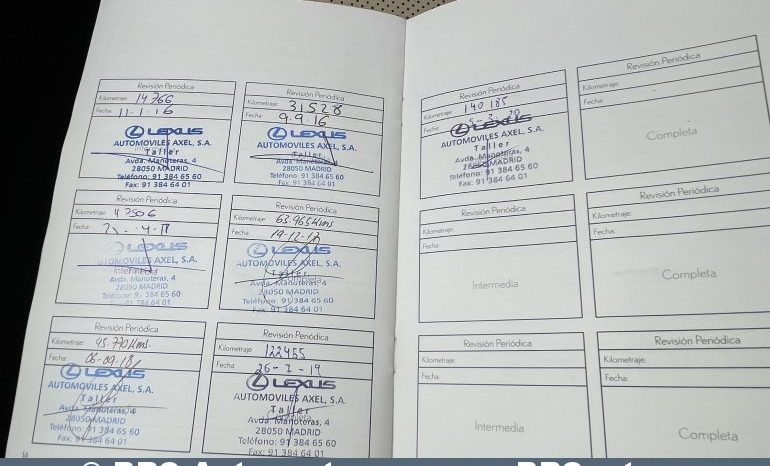 Revisión Periódica
Kilometraje: 14766
Fecha: 11-1-16
LEXUS
AUTOMOVILES AXEL, S.A.
Taller
Avda. Manoteras, 4
28050 MADRID
Teléfono: 91 384 65 60
Fax: 91 384 64 01
Revisión Periódica
Kilometraje: 31528
Fecha: 9-9-16
LEXUS
AUTOMOVILES AXEL, S.A.
Taller
Avda. Manoteras, 4
28050 MADRID
Teléfono: 91 384 65 60
Fax: 91 384 64 01
Revisión Periódica
Kilometraje:
Fecha:
LEXUS
AUTOMOVILES AXEL, S.A.
Intermedia
Avda. Manoteras, 4
28050 MADRID
Teléfono: 91 384 65 60
Fax: 91 384 64 01
Revisión Periódica
Kilometraje: 63.965 Kms
Fecha: 19-12-17
LEXUS
AUTOMOVILES AXEL, S.A.
Taller
Avda. Manoteras, 4
28050 MADRID
Teléfono: 91 384 65 60
Fax: 91 384 64 01
Revisión Periódica
Kilometraje: 95.770 Kms.
Fecha: 06-09-18
LEXUS
AUTOMOVILES AXEL, S.A.
Taller
Avda. Manoteras, 4
28050 MADRID
Teléfono: 91 384 65 60
Fax: 91 384 64 01
Revisión Periódica
Kilometraje: 122455
Fecha: 26-7-19
LEXUS
AUTOMOVILES AXEL, S.A.
Taller
Avda. Manoteras, 4
28050 MADRID
Teléfono: 91 384 65 60
Fax: 91 384 64 01
14
Revisión Periódica
Kilometraje: 140185
Fecha:
LEXUS
AUTOMOVILES AXEL, S.A.
Taller
Avda. Manoteras, 4
28050 MADRID
Teléfono: 91 384 65 60
Fax: 91 384 64 01
Revisión Periódica
Kilometraje:
Fecha:
Completa
Revisión Periódica
Kilometraje:
Fecha:
Intermedia
Revisión Periódica
Kilometraje:
Fecha:
Completa
Revisión Periódica
Kilometraje:
Fecha:
Intermedia
Revisión Periódica
Kilometraje:
Fecha:
Completa